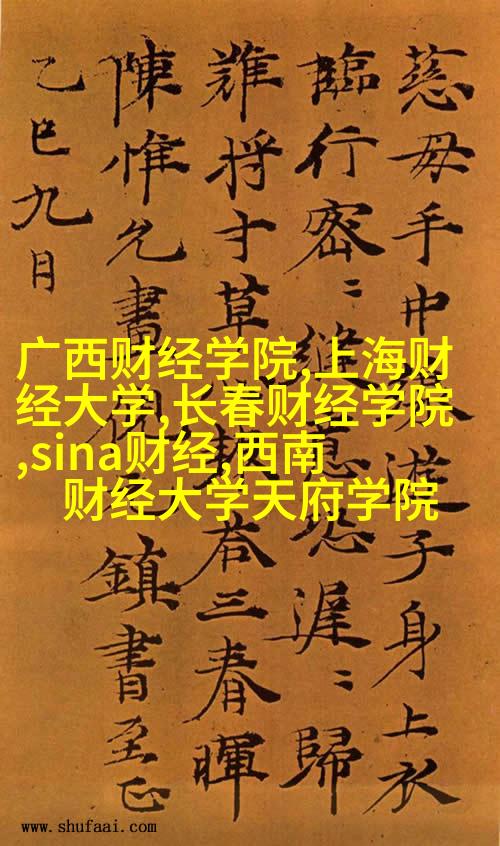 慈母手中線遊子身上衣
臨行密〻縫意恐遲〻歸
難将寸草荅三春暉
陳惟允書鎮書至正
乙巳九月
广西财经学院,上海财
经大学,长春财经学院
,sina财经,西南
财经大学天府学院
www.shufaai.com